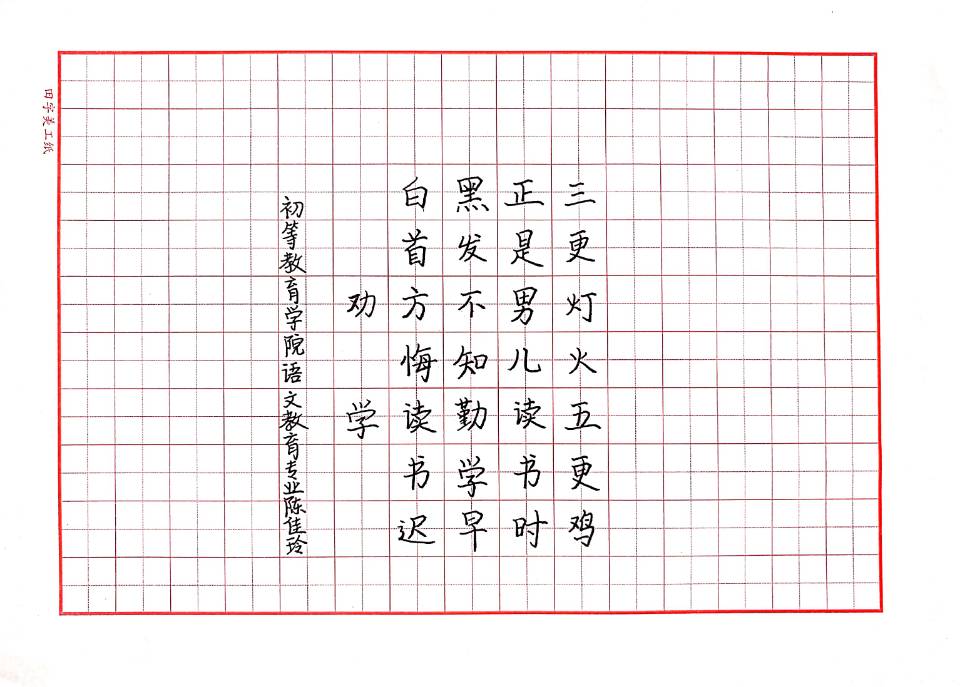 三更灯火五更鸡
正是男儿读书时
黑发不知勤学早
白首方悔读书迟
劝学
初等教育学院语文教育专业陈佳玲
田字美工纸